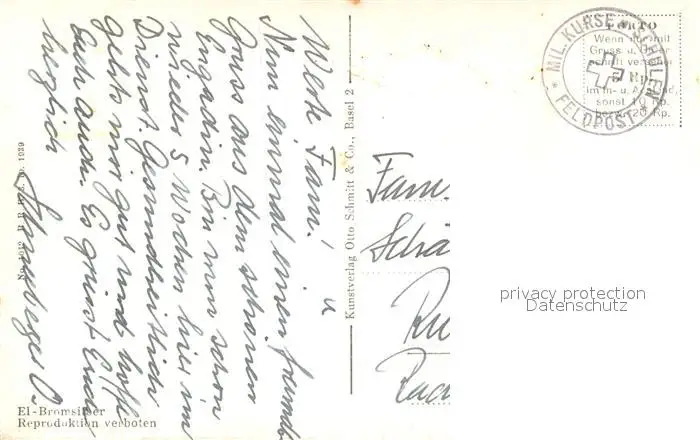 Werte Fam!
Nun einmal einen freundl.
Gruss aus dem schönen
Engadin. Bin nun schon
wieder 5 Wochen hier im
Dienst. Gesundheitlich
gehts mir gut und hoffe
Euch auch. Es grüsst Euch
herzlich
El-Bromsilber
Reproduktion verboten
Kunstverlag Otto Schmitt & Co., Basel 2
Fam.
Schä
PORTO
Wenn nur mit
Gruss u. Unter-
schrift versehen
5 Rp.
im In- u. Ausland,
sonst 10 Rp.
bezw. 20 Rp.
MIL. KURSE SCHULEN
* FELDPOST *
privacy protection
Datenschutz